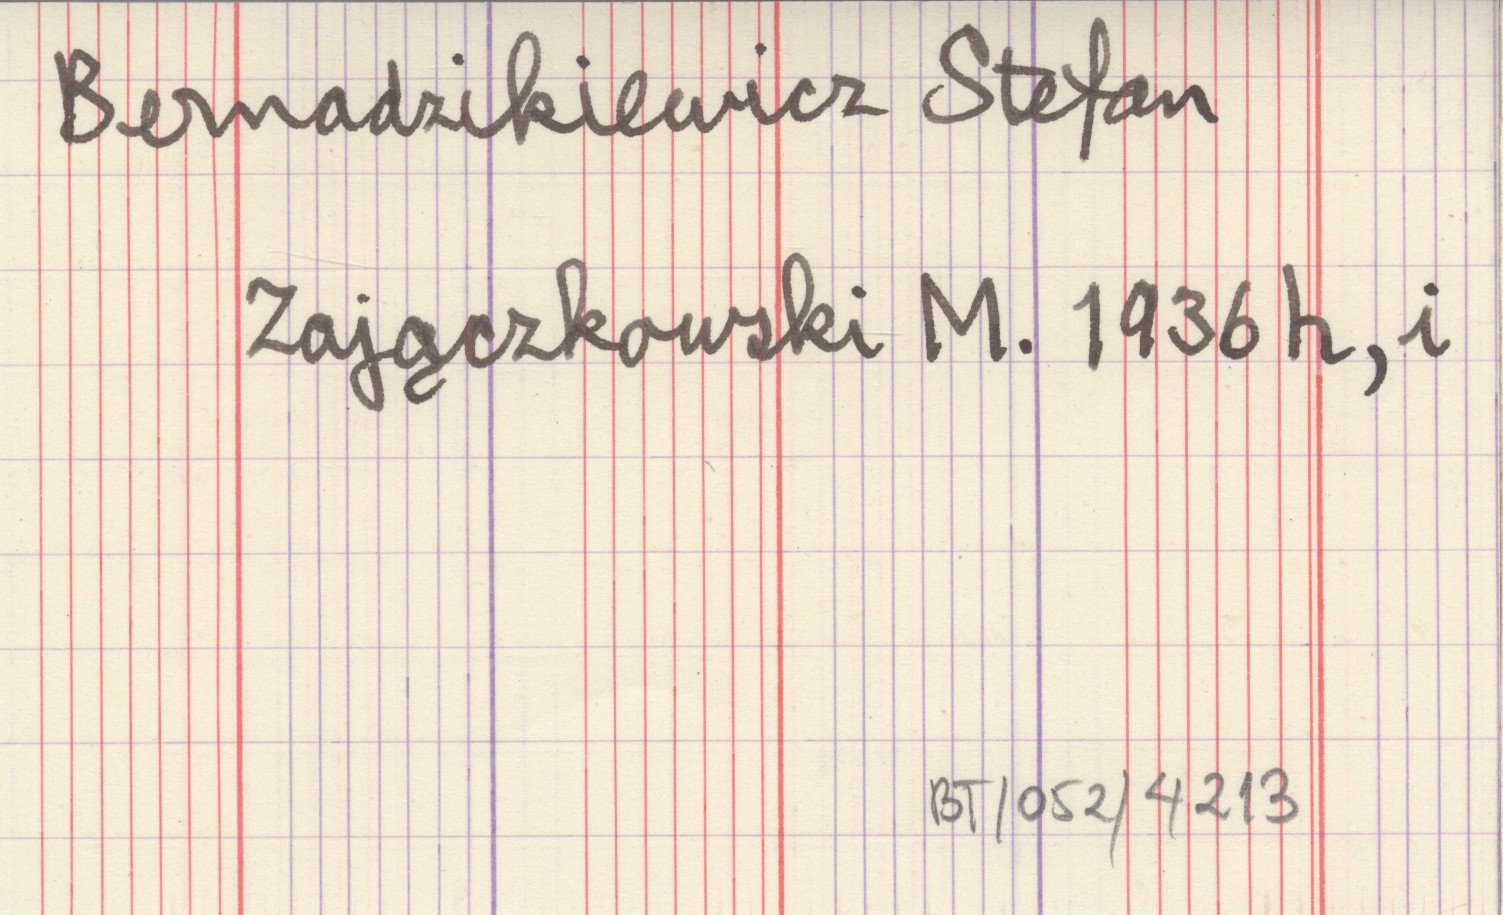 Bernadzikiewicz Stefan
Zajączkowski M. 1936 h, i
BT/052/4213